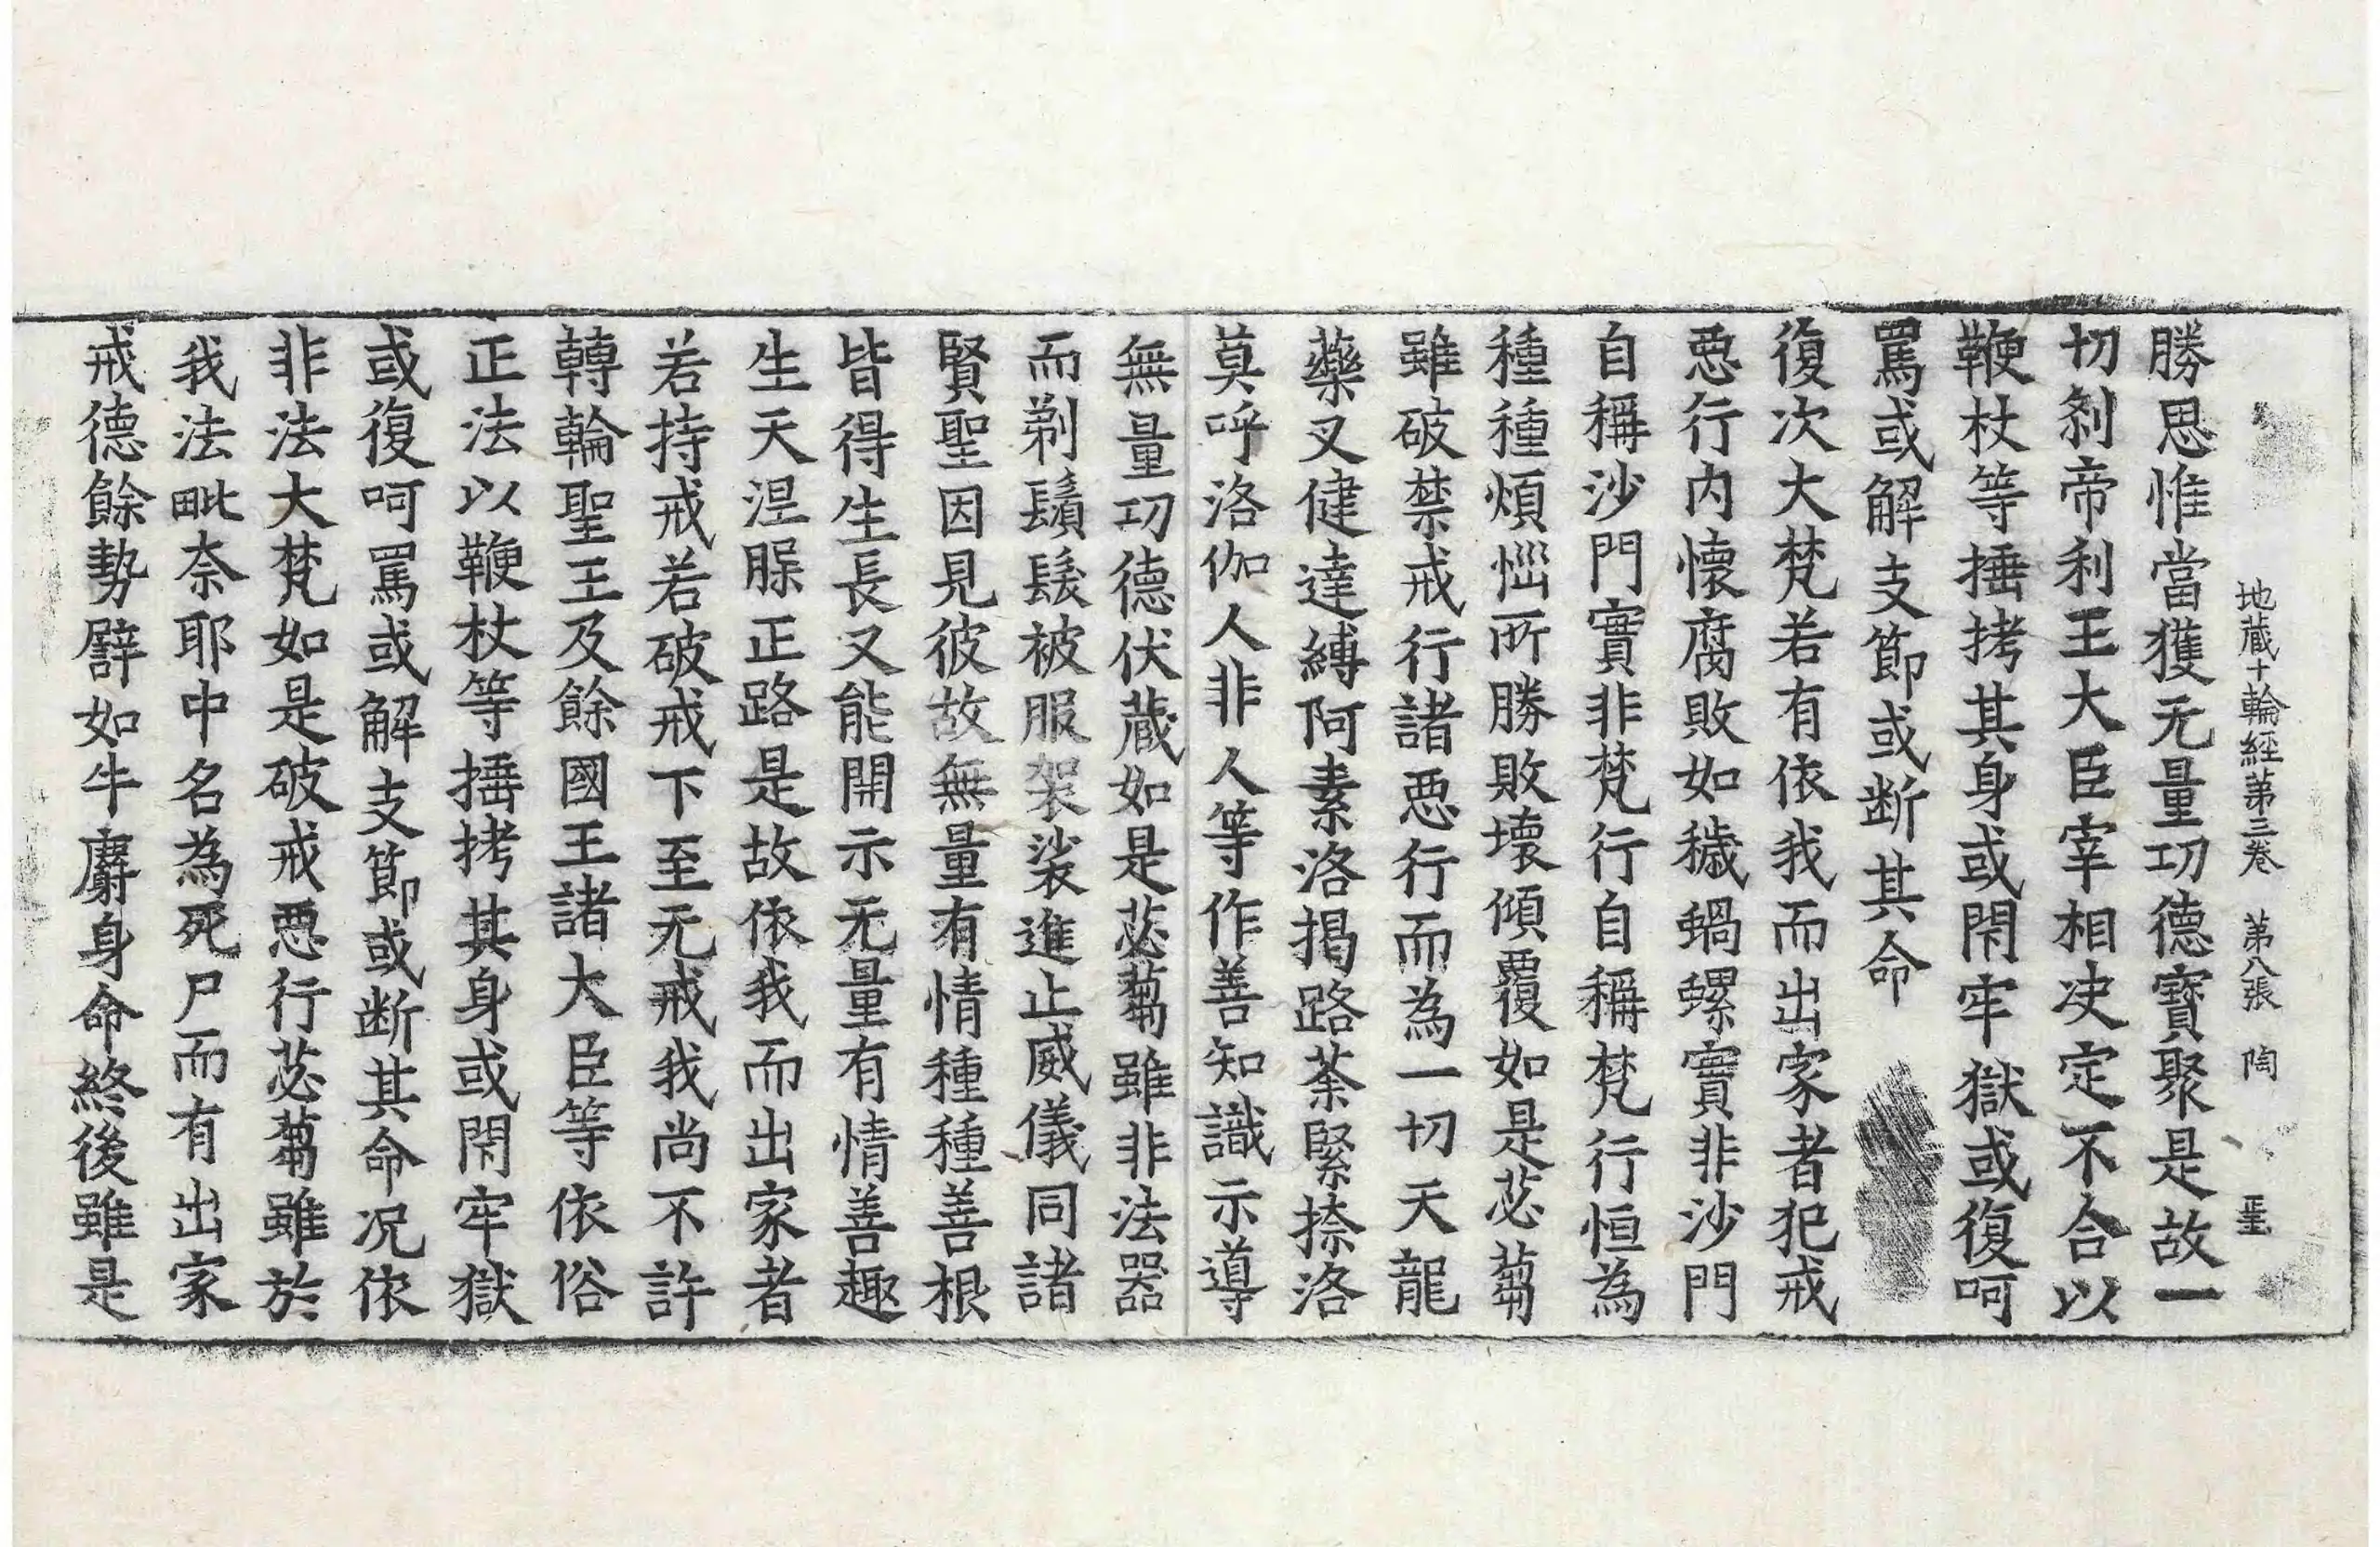 地蔵十輪經第三卷　第八張　陶
勝思惟當獲无量功德寶聚是故一
切刹帝利王大臣宰相决定不合以
鞭杖等捶拷其身或閇牢獄或復呵
罵或解支節或断其命
復次大梵若有依我而出家者犯戒
惡行内懷腐敗如穢蝸螺實非沙門
自稱沙門實非梵行自稱梵行恒為
種種煩惱所勝敗壞傾覆如是苾蒭
雖破禁戒行諸惡行而為一切天龍
藥叉健達縛阿素洛揭路荼緊捺洛
莫呼洛伽人非人等作善知識示導
無量功德伏蔵如是苾蒭雖非法器
而剃鬚髮被服袈裟進止威儀同諸
賢聖因見彼故無量有情種種善根
皆得生長又能開示无量有情善趣
生天涅槃正路是故依我而出家者
若持戒若破戒下至无戒我尚不許
轉輪聖王及餘國王諸大臣等依俗
正法以鞭杖等捶拷其身或閇牢獄
或復呵罵或解支節或断其命况依
非法大梵如是破戒惡行苾蒭雖於
我法毗奈耶中名為死尸而有出家
戒德餘勢譬如牛麝身命終後雖是